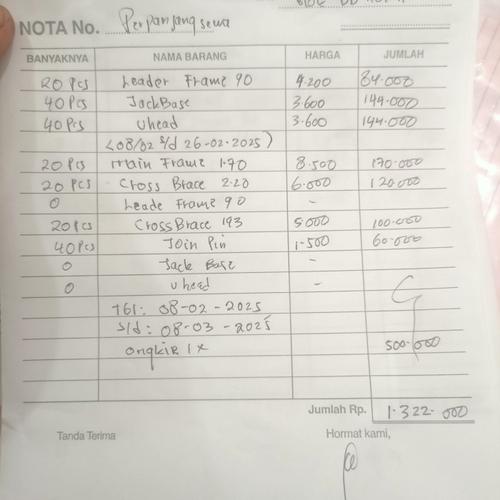 NOTA No. Perpanjang sewa
BANYAKNYA NAMA BARANG HARGA JUMLAH
20 Pcs Leader Frame 90 4.200 84.000
40 Pcs JackBase 3.600 144.000
40 Pcs Uhead 3.600 144.000
(08/02 s/d 26-02-2025)
20 Pcs Main Frame 1.70 8.500 170.000
20 Pcs Cross Brace 2.20 6.000 120.000
0 Leade Frame 90 -
20 Pcs CrossBrace 193 5000 100.000
40 Pcs Join Pin 1.500 60.000
0 Jack Base -
0 Uhead -
tgl: 08-02-2025
s/d: 08-03-2025
ongkir 1x 500.000
Jumlah Rp. 1.322.000
Tanda Terima Hormat kami,